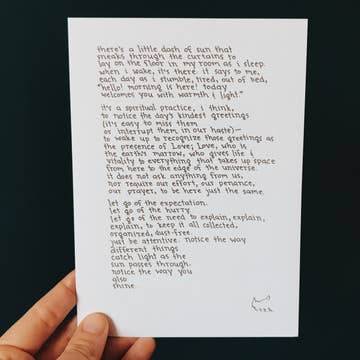 there's a little dash of sun that
sneaks through the curtains to
lay on the floor in my room as i sleep.
when i wake, it's there. it says to me,
each day as i stumble, tired, out of bed,
"hello! morning is here! today
welcomes you with warmth & light."
it's a spiritual practice, i think,
to notice the day's kindest greetings
(it's easy to miss them
or interrupt them in our haste)—
to wake up to recognize those greetings as
the presence of Love; Love, who is
the earth's marrow, who gives life &
vitality to everything that takes up space
from here to the edge of the universe.
it does not ask anything from us,
nor require our effort, our penance,
our prayer, to be here just the same.
let go of the expectation.
let go of the hurry.
let go of the need to explain, explain,
explain, to keep it all collected,
organized, dust-free.
just be attentive. notice the way
different things
catch light as the
sun passes through.
notice the way you
also
shine.